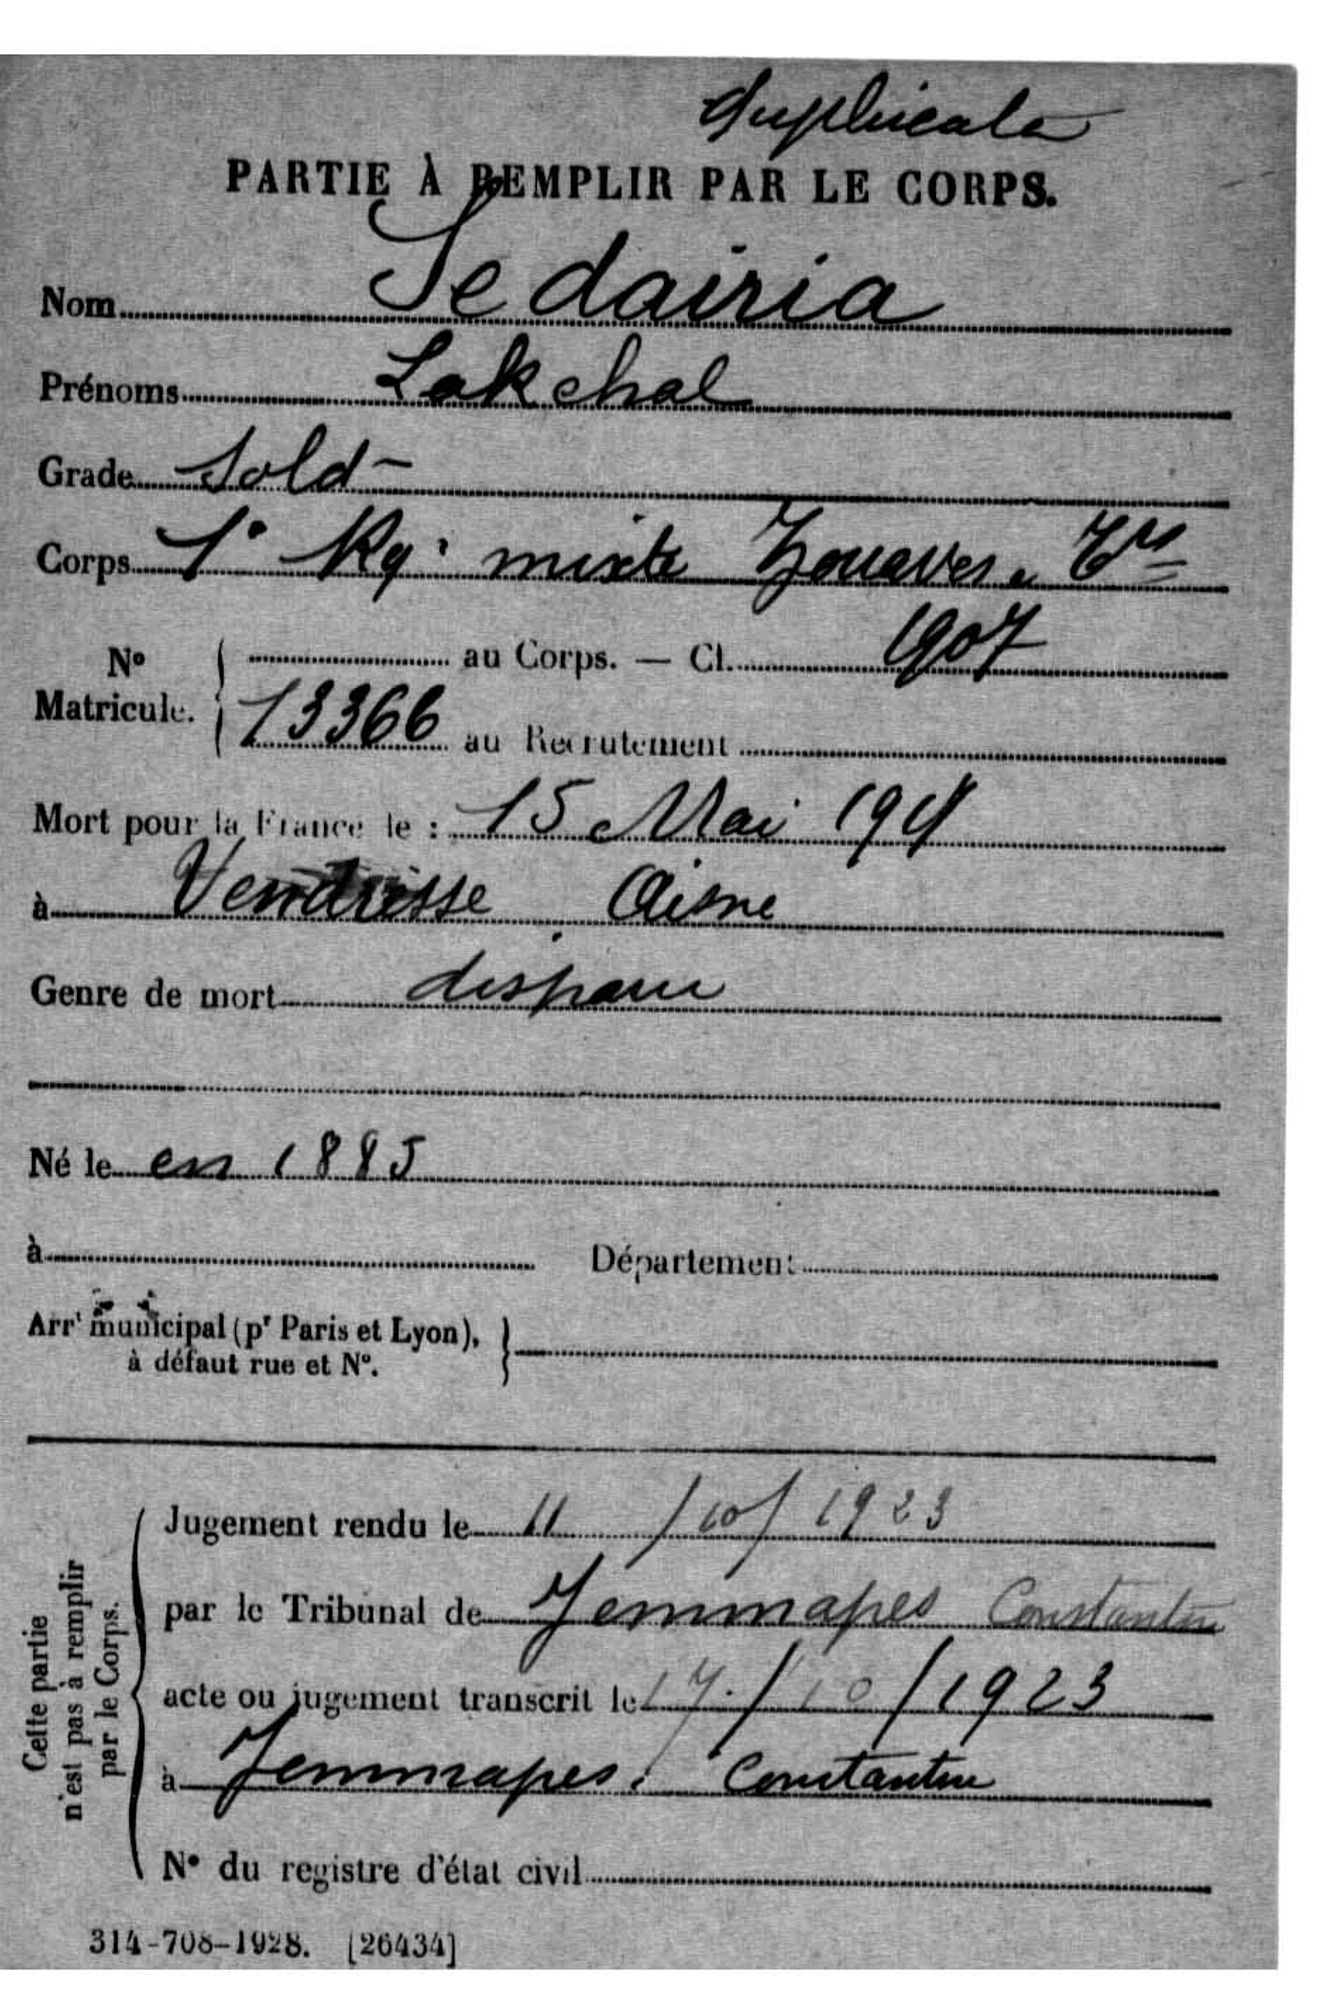 duplicata
PARTIE À REMPLIR PAR LE CORPS.
Nom Sedairia
Prénoms Lakehal
Grade Sold
Corps 1° Rgt mixte Zouaves
Nº au Corps. — Cl. 1907
Matricule. 13366 au Recrutement
Mort pour la France le : 15 Mai
à Vendresse Aisne
Genre de mort disparu
Né le en 1885
à Département
Arrt municipal (pr Paris et Lyon),
à défaut rue et Nº.
Cette partie
n'est pas à remplir
par le Corps.
Jugement rendu le 11 /10/ 1923
par le Tribunal de Jemmapes Constantine
acte ou jugement transcrit le 17. / 10 / 1923
à Jemmapes. Constantine
Nº du registre d'état civil
314-708-1928. [26434]